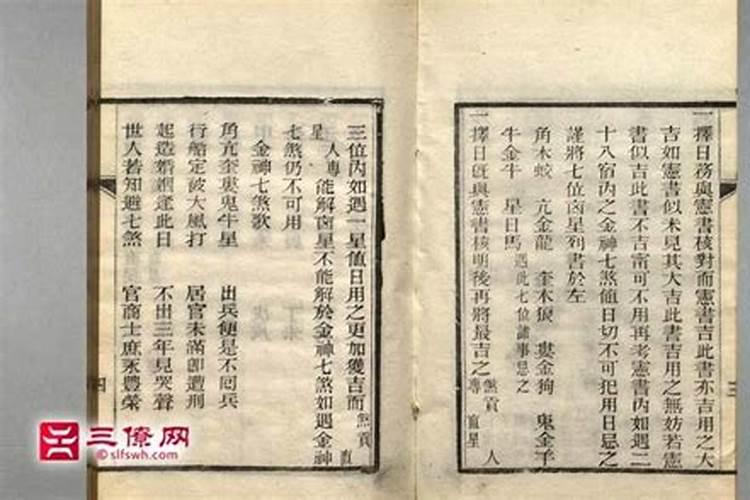 一擇日務與憲書核對而憲書吉此書亦吉用之大
吉如憲書似未見其大吉此書吉用之無妨若憲
書似吉此書不吉甯可不用再考憲書內如遇二
十八宿內之金神七煞値日切不可犯用日忌之
謹將七位凶星列書於左
角木蛟 亢金龍 奎木狼 婁金狗 鬼金羊
牛金牛 星日馬 遇此七位諸事忌之
一擇日旣與憲書核明後再將最吉之 煞貢 直星 人專
三
三位內如遇一星値日用之更加獲吉而 煞貢 直
星 人專 能解凶星不能解於金神七煞如遇金神
七煞仍不可用
金神七煞歌
角亢奎婁鬼牛星 出兵便是不回兵
行船定被大風打 居官未滿卽遭刑
起造婚姻逢此日 不出三年見哭聲
世人若知避七煞 官商士庶永豐榮
四
三僚网
©slfswh.com